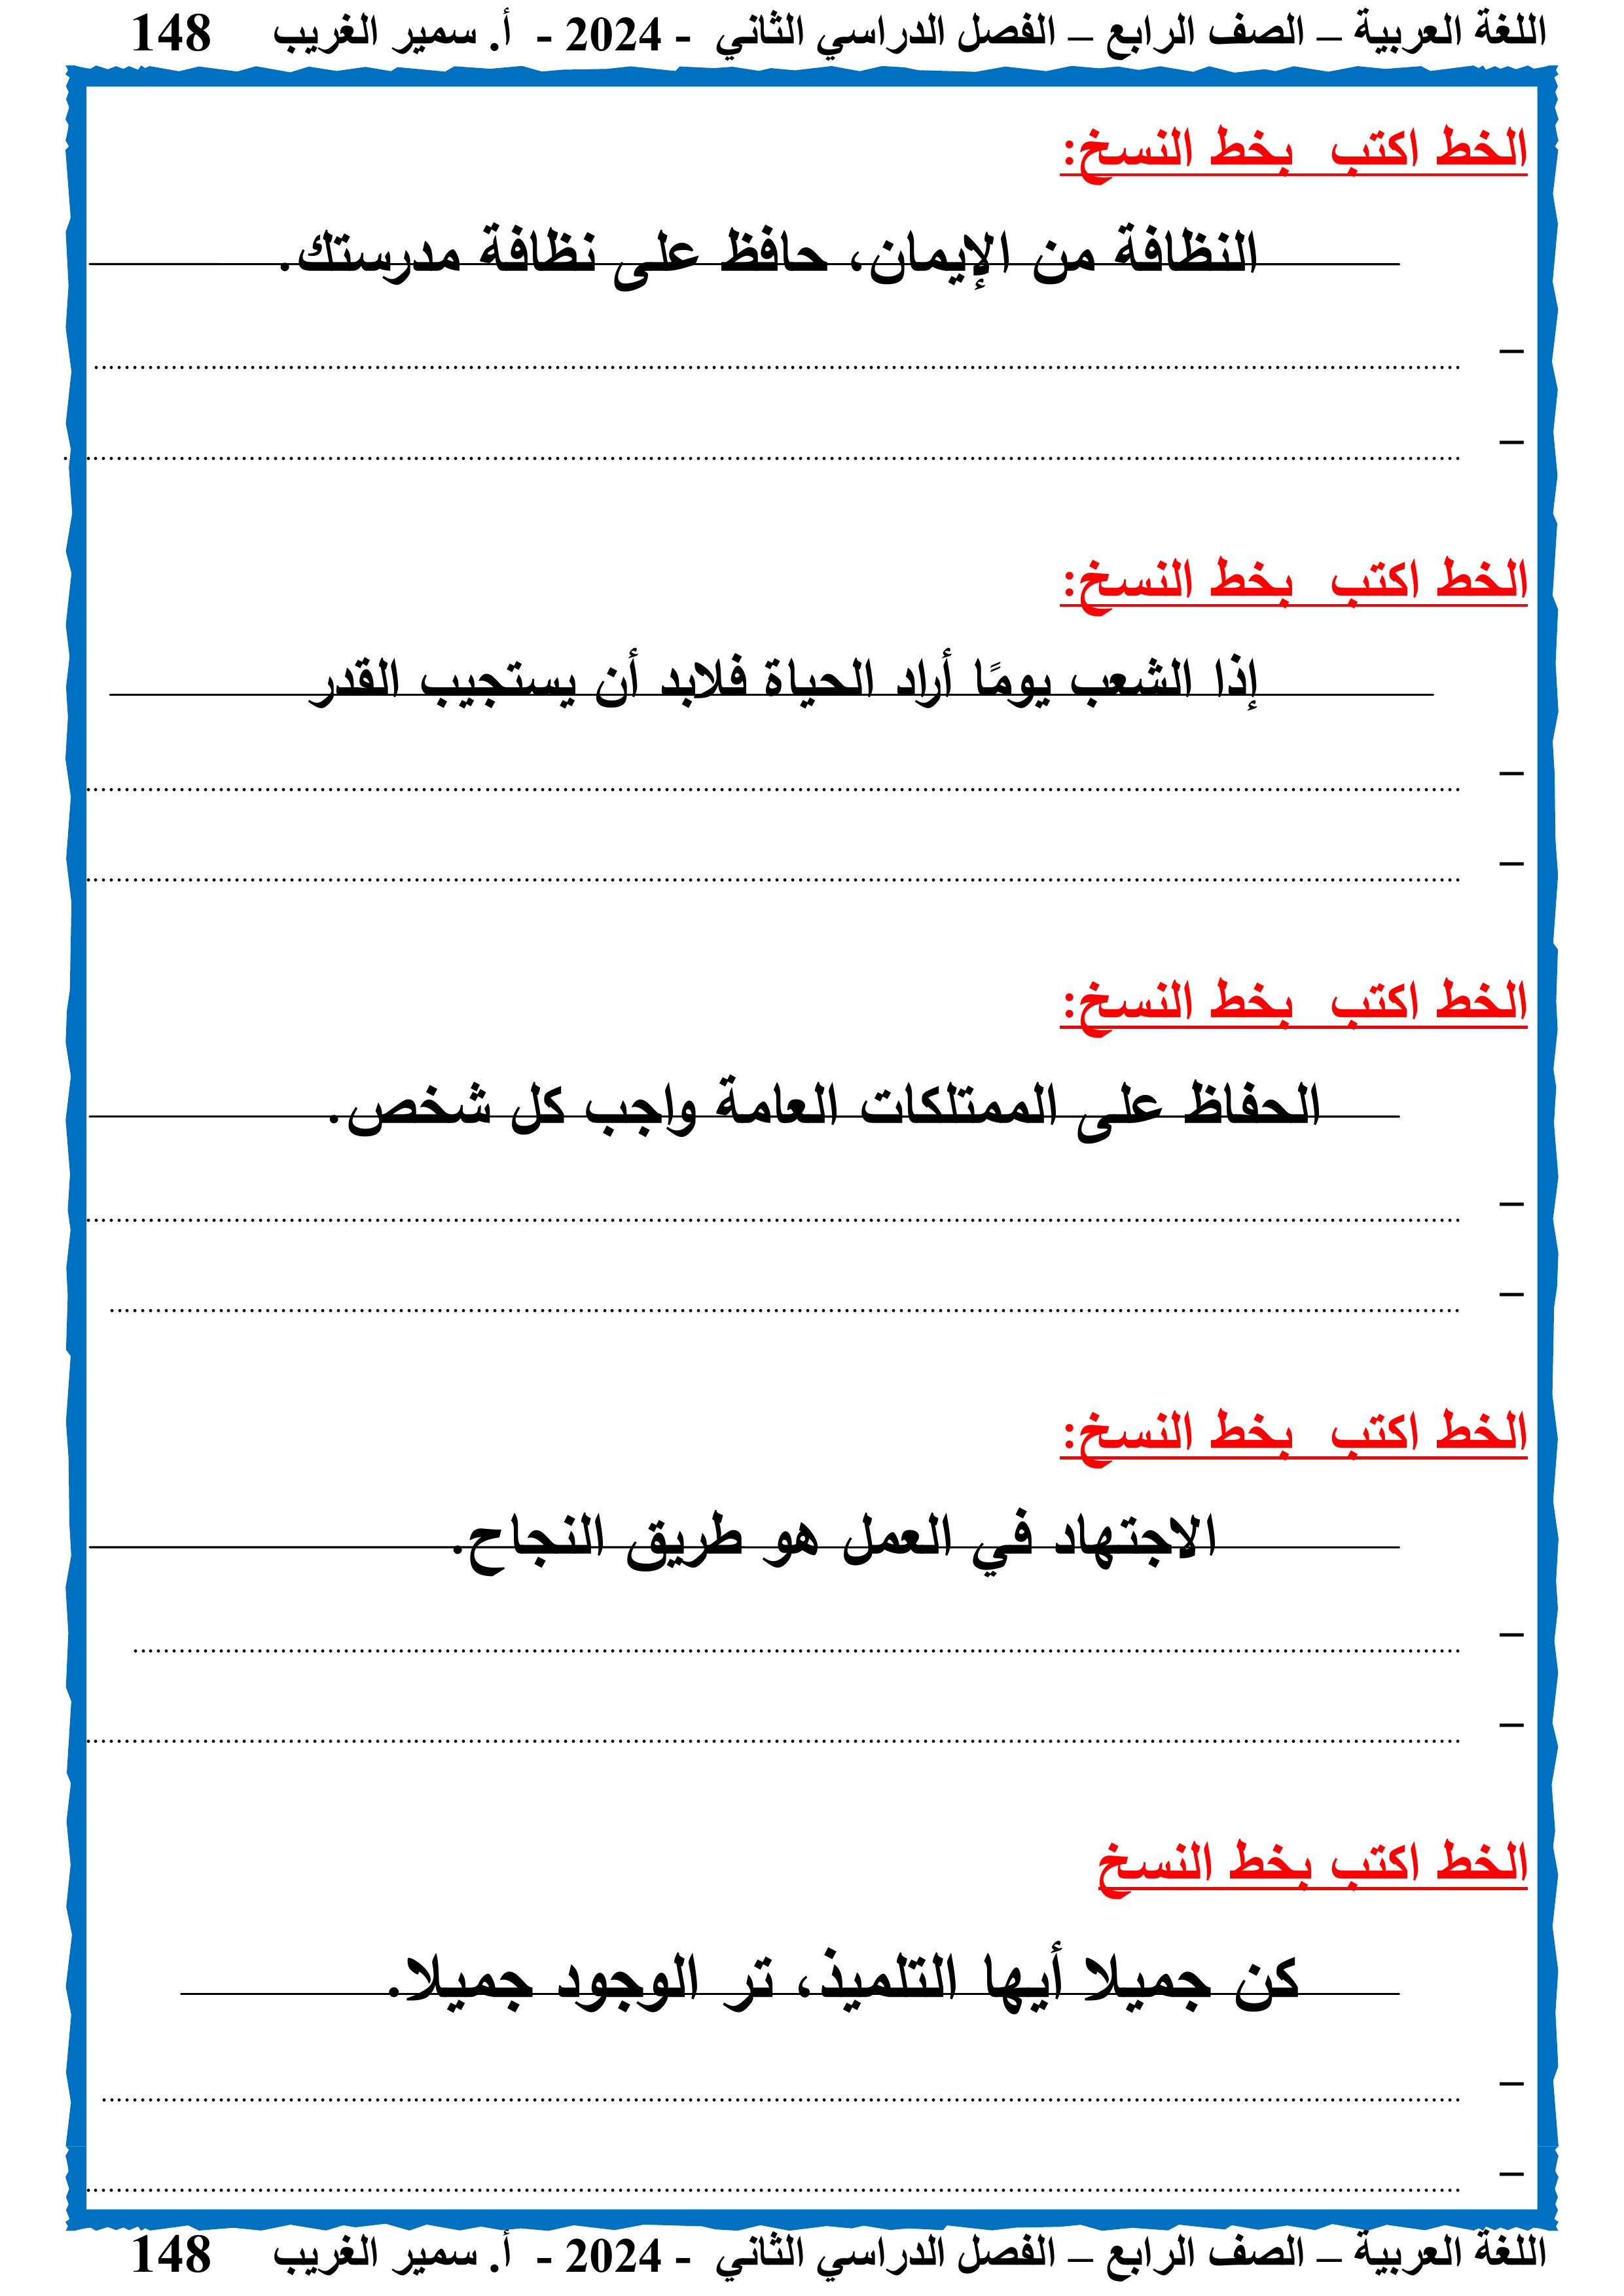 اللغة العربية – الصف الرابع – الفصل الدراسي الثاني - 2024 - أ. سمير الغريب 148
الخط اكتب بخط النسخ:
النظافة من الإيمان، حافظ على نظافة مدرستك.
–
–
الخط اكتب بخط النسخ:
إذا الشعب يومًا أراد الحياة فلابد أن يستجيب القدر
–
–
الخط اكتب بخط النسخ:
الحفاظ على الممتلكات العامة واجب كل شخص.
–
–
الخط اكتب بخط النسخ:
الاجتهاد في العمل هو طريق النجاح.
–
–
الخط اكتب بخط النسخ
كن جميلا أيها التلميذ، تر الوجود جميلا.
–
–
اللغة العربية – الصف الرابع – الفصل الدراسي الثاني - 2024 - أ. سمير الغريب 148